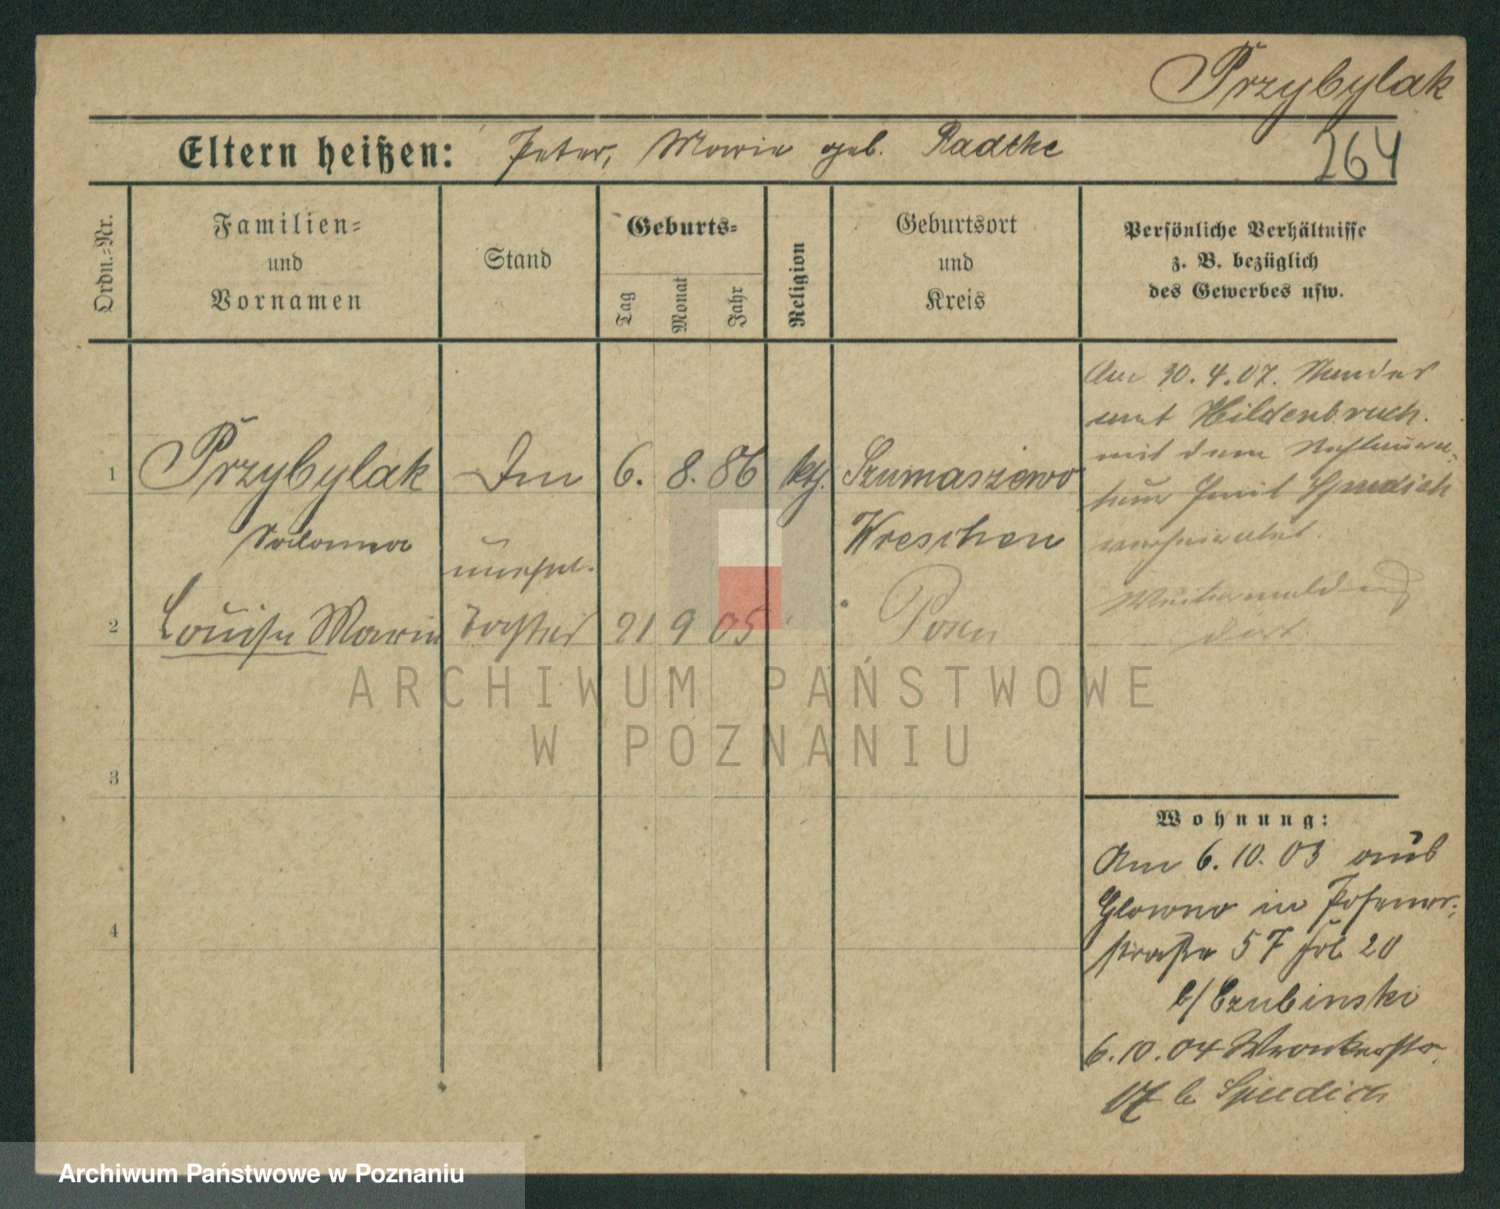 Przybylak
Eltern heißen: Peter, Marie geb. Radtke
264
Ordn.=Nr.
Familien=
und
Vornamen
Stand
Geburts=
Tag
Monat
Jahr
Religion
Geburtsort
und
Kreis
Persönliche Verhältnisse
z. B. bezüglich
des Gewerbes usw.
1 Przybylak 6. 8. 86 kth. Szumaszewo
Wreschen
unehel.
2 Louise Marie Tochter 21 9 05 Posen
3
4
Am 30.4.07. Standes
amt Hildenbruch.
mit dem
verheiratet.
dort
Wohnung:
Am 6.10.03 aus
Glowno in Posener=
straße 57 20
b/ Czubinski
6.10.04 Wronkerstr.
17 b Spudich
ARCHIWUM PAŃSTWOWE
W POZNANIU
Archiwum Państwowe w Poznaniu